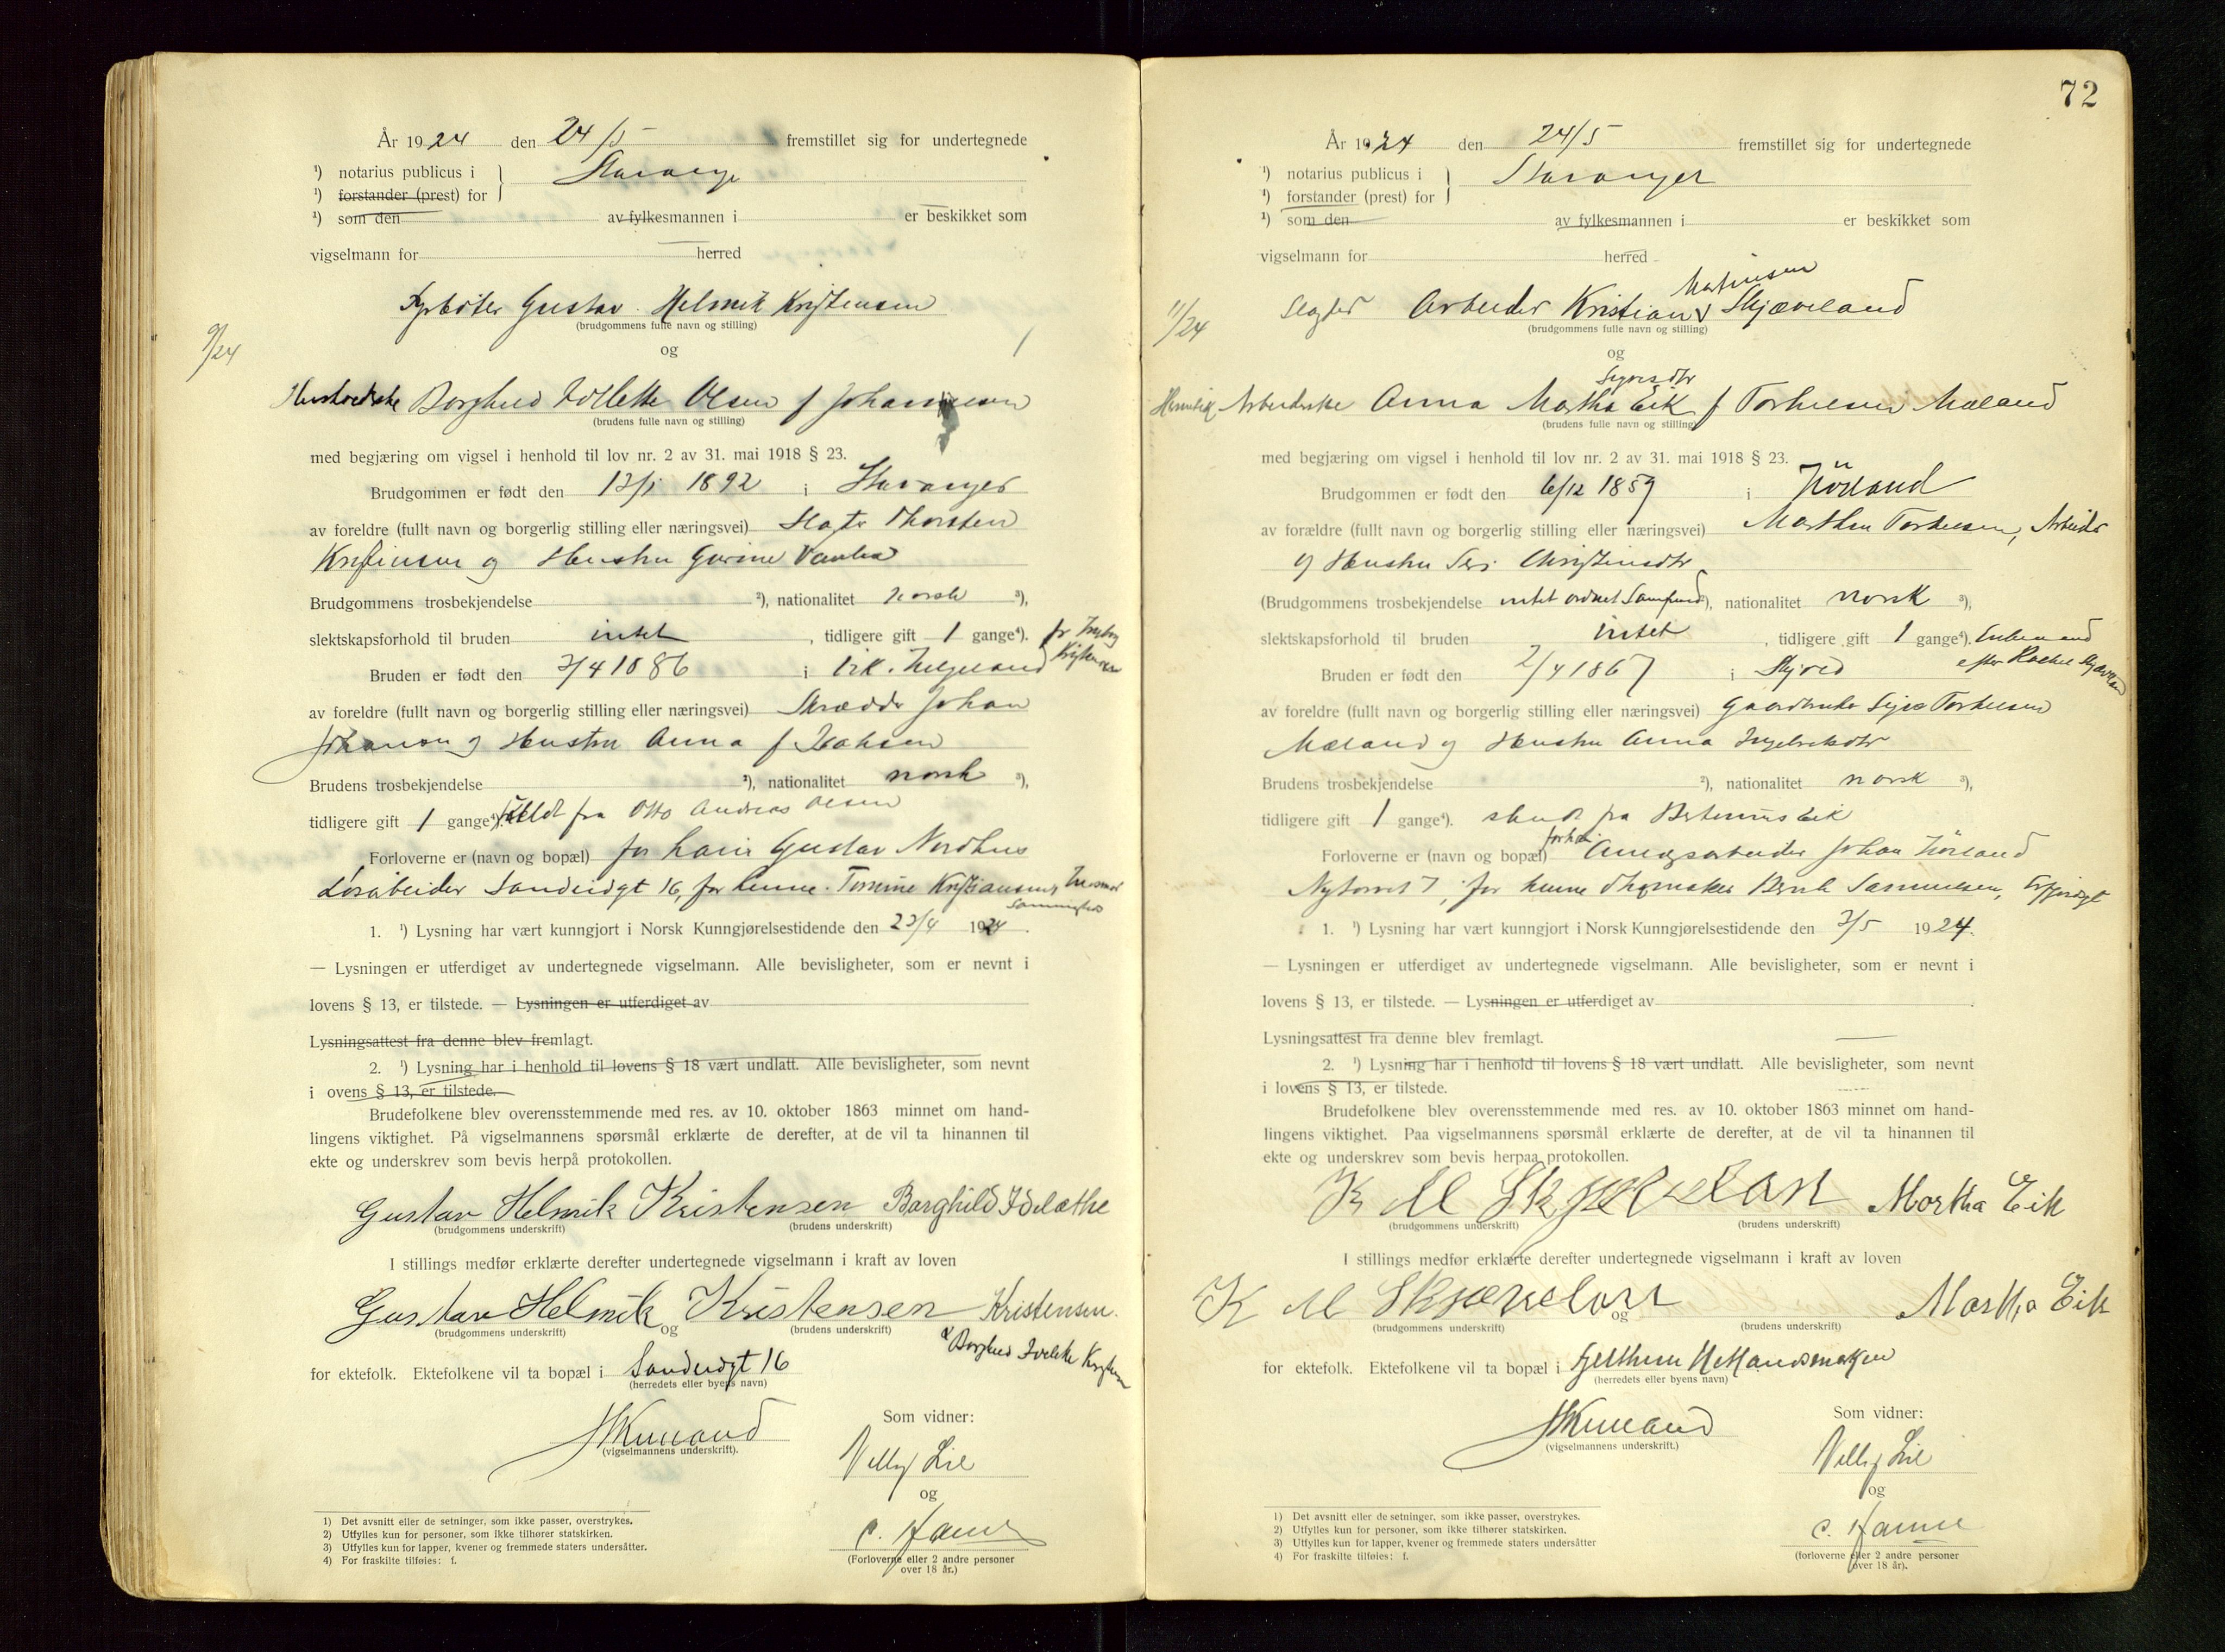 År 1924 den 24/5 fremstillet sig for undertegnede
¹) notarius publicus i } Stavanger
¹) forstander (prest) for
¹) som den av fylkesmannen i er beskikket som
vigselmann for herred
Fyrbøter Gustav Helmik Kristensen
(brudgommens fulle navn og stilling)
9/24
og
Borghild Idelette Olsen f Johannesen
(brudens fulle navn og stilling)
med begjæring om vigsel i henhold til lov nr. 2 av 31. mai 1918 § 23.
Brudgommen er født den 1892 i Stavanger
av foreldre (fullt navn og borgerlig stilling eller næringsvei) Thorsten
Kristensen og Hustru Gurine
Brudgommens trosbekjendelse ²), nationalitet norsk ³),
slektskapsforhold til bruden intet , tidligere gift 1 gange⁴).
Bruden er født den 3/4 1886 i
av foreldre (fullt navn og borgerlig stilling eller næringsvei) Skrædder Johan
og Hustru Anna f Isaksen
Brudens trosbekjendelse ²), nationalitet norsk ³),
tidligere gift 1 gange⁴). skildt fra Otto Andreas Olsen
Forloverne er (navn og bopæl) for ham Gustav Nordhus
Løsarbeider Sandeidgt 16, for henne Tomine Kristiansen
1. ¹) Lysning har vært kunngjort i Norsk Kunngjørelsestidende den 23/4 1924 .
— Lysningen er utferdiget av undertegnede vigselmann. Alle bevisligheter, som er nevnt i
lovens § 13, er tilstede. — Lysningen er utferdiget av
Lysningsattest fra denne blev fremlagt.
2. ¹) Lysning har i henhold til lovens § 18 vært undlatt. Alle bevisligheter, som nevnt
i ovens § 13, er tilstede.
Brudefolkene blev overensstemmende med res. av 10. oktober 1863 minnet om hand-
lingens viktighet. På vigselmannens spørsmål erklærte de derefter, at de vil ta hinannen til
ekte og underskrev som bevis herpå protokollen.
Gustav Helmik Kristensen Borghild Idelæthe
(brudgommens underskrift) (brudens underskrift)
I stillings medfør erklærte derefter undertegnede vigselmann i kraft av loven
Gustav Helmik Kristensen Kristensen.
(brudgommens underskrift) og (brudens underskrift)
for ektefolk. Ektefolkene vil ta bopæl i Sandeidgt 16
(herredets eller byens navn)
(vigselmannens underskrift).
Som vidner:
Villy Lie
og
C. Hanne
(Forloverne eller 2 andre personer
over 18 år.)
1) Det avsnitt eller de setninger, som ikke passer, overstrykes.
2) Utfylles kun for personer, som ikke tilhører statskirken.
3) Utfylles kun for lapper, kvener og fremmede staters undersåtter.
4) For fraskilte tilføies: f.
72
År 1924 den 24/5 fremstillet sig for undertegnede
¹) notarius publicus i } Stavanger
¹) forstander (prest) for
¹) som den av fylkesmannen i er beskikket som
vigselmann for herred
11/24
Arbeider Kristian Matinsen Skjæveland
(brudgommens fulle navn og stilling)
og
Arbeiderske Anna Martha Eik f Torkelsen Mæland
(brudens fulle navn og stilling)
med begjæring om vigsel i henhold til lov nr. 2 av 31. mai 1918 § 23.
Brudgommen er født den 6/12 1859 i Hörland
av forældre (fullt navn og borgerlig stilling eller næringsvei) Morthen Torkelsen, Arbeider
og Hustru Seri Christinsdtr
(Brudgommens trosbekjendelse intet ordnet Samfund), nationalitet norsk ³),
slektskapsforhold til bruden intet , tidligere gift 1 gange⁴). Enkemand
efter Rachel Skjæveland
Bruden er født den 2/4 1867 i
av foreldre (fullt navn og borgerlig stilling eller næringsvei) Gaardbruker Torkelsen
Mæland og Hustru Anna Ingebretsdtr
Brudens trosbekjendelse ²), nationalitet norsk ³),
tidligere gift 1 gange⁴). fra Eik
Forloverne er (navn og bopæl) for ham Johan Hörland
Nytorvet 7, for henne Bernh Samuelsen,
1. ¹) Lysning har vært kunngjort i Norsk Kunngjørelsestidende den 3/5 1924.
— Lysningen er utferdiget av undertegnede vigselmann. Alle bevisligheter, som er nevnt i
lovens § 13, er tilstede. — Lysningen er utferdiget av .
Lysningsattest fra denne blev fremlagt.
2. ¹) Lysning har i henhold til lovens § 18 vært undlatt. Alle bevisligheter, som nevnt
i lovens § 13, er tilstede.
Brudefolkene blev overensstemmende med res. av 10. oktober 1863 minnet om hand-
lingens viktighet. Paa vigselmannens spørsmål erklærte de derefter, at de vil ta hinannen til
ekte og underskrev som bevis herpaa protokollen.
K M Skjævelan Martha Eik
(brudgommens underskrift) (brudens underskrift)
I stillings medfør erklærte derefter undertegnede vigselmann i kraft av loven
K M Skjævelan Martha Eik
(brudgommens underskrift) og (brudens underskrift)
for ektefolk. Ektefolkene vil ta bopæl i
(herredets eller byens navn)
(vigselmannens underskrift.)
Som vidner:
Villy Lie
og
C. Hanne
(forloverne eller 2 andre personer
over 18 år).
1) Det avsnitt eller de setninger, som ikke passer, overstrykes.
2) Utfylles kun for personer, som ikke tilhører statskirken.
3) Utfylles kun for lapper, kvener og fremmede staters undersåtter
4) For fraskilte tilføies: f.